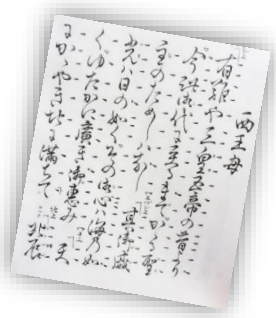 西王母
有難や三皇五帝の昔より
今此御代に至るまでかゝる聖
主のためしハなし其御威
光ハ日の如くその御心ハ海乃如
くゆたかに廣き御恵み天
にかゝやき地に満ちて北辰